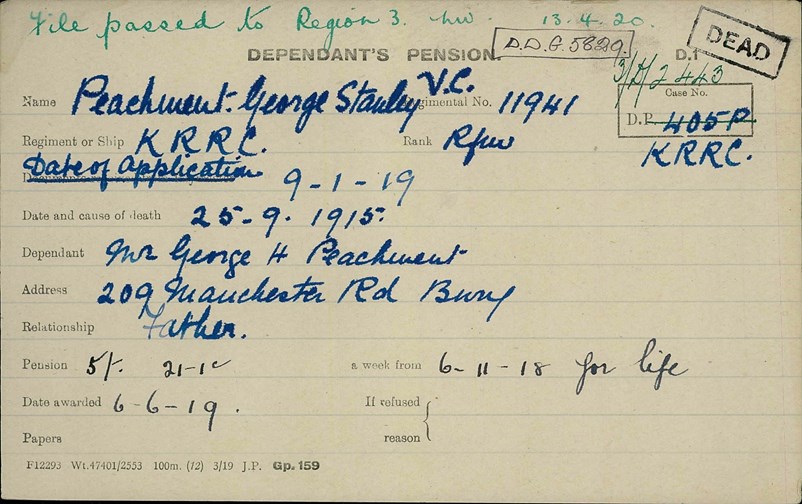 File passed to Region 3. 13.4.20.
DEPENDANT'S PENSION. D.D.G.5829. D.1 DEAD
3/D/2443
Name Peachment. George Stanley V.C. Regimental No. 11941
Case No.
D.P. 405P.
Regiment or Ship KRRC. Rank Rfm KRRC.
Date of Application 9-1-19
Date and cause of death 25-9-1915.
Dependant Mr George H Peachment
Address 209 Manchester Rd Bury
Relationship Father.
Pension 5/-. a week from 6-11-18 for life
Date awarded 6-6-19. If refused
Papers reason
F12293 Wt.47401/2553 100m. (12) 3/19 J.P. Gp.159